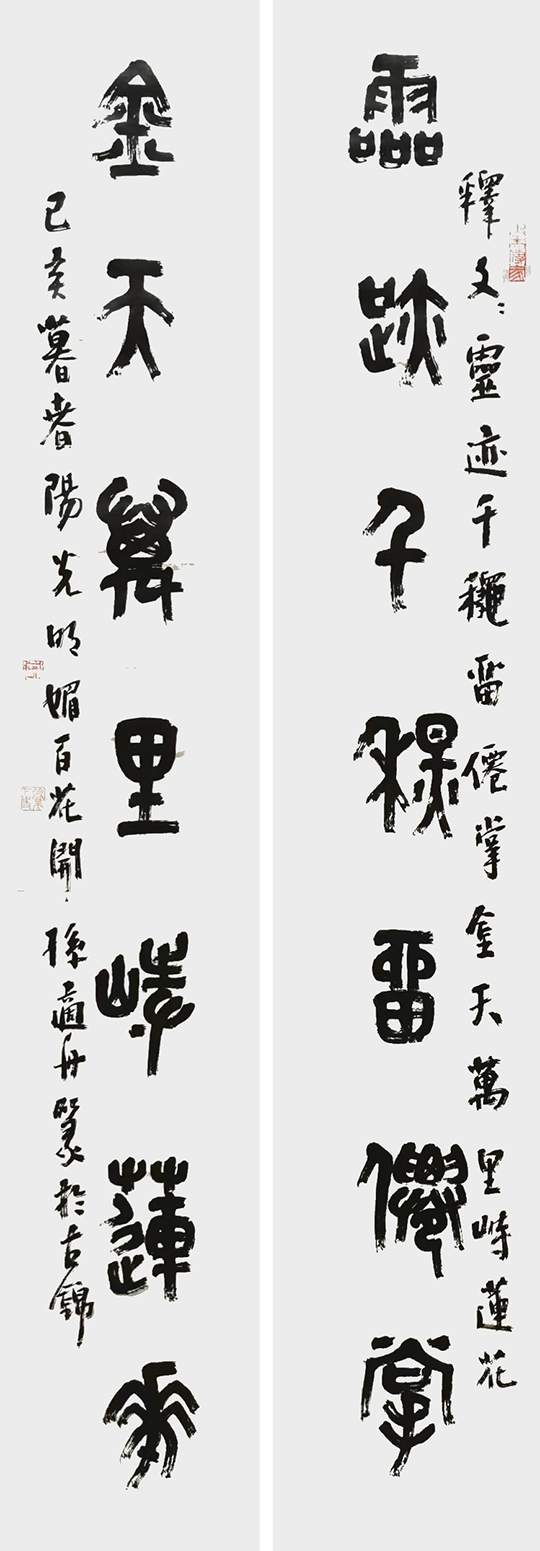 釋文：靈迹千穐畱僊掌金天萬里峙蓮花
霝跡千秋畱僊掌
金天萬里峙蓮華
己亥暮春陽光明媚百花開孫適舟篆於古錦